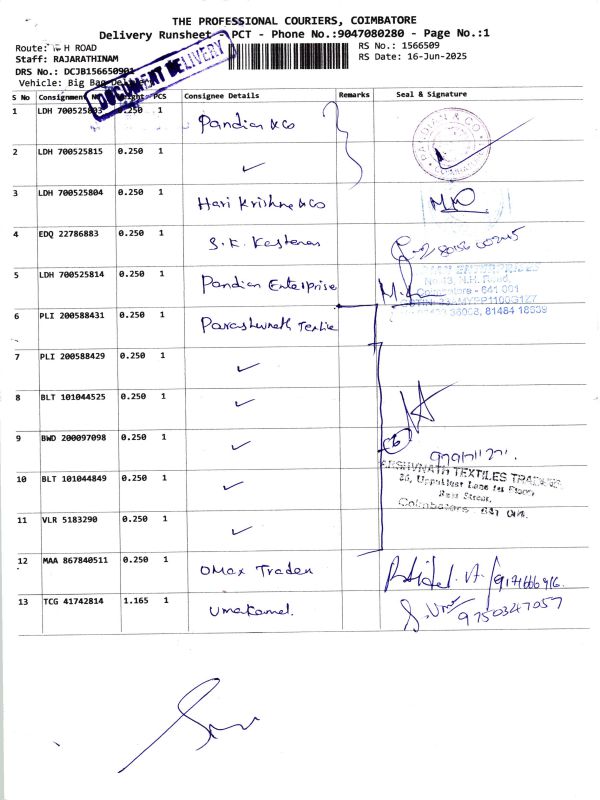 THE PROFESSIONAL COURIERS, COIMBATORE
Delivery Runsheet - PCT - Phone No.:9047080280 - Page No.:1
Route: H ROAD
RS No.: 1566509
Staff: RAJARATHINAM
RS Date: 16-Jun-2025
DRS No.: DCJB156650901
Vehicle: Big Bag Delivery
DOCUMENT DELIVERY
S No Consignment No Weight PCS Consignee Details Remarks Seal & Signature
1 LDH 700525803 0.250 1 Pandian & Co
PANDIAN & CO COIMBATORE
2 LDH 700525815 0.250 1 ✓
3 LDH 700525804 0.250 1 Hari Krishna & Co
4 EDQ 22786883 0.250 1 S.K.
5 LDH 700525814 0.250 1 Pandian Enterprise
No.13, N.H. Road,
Coimbatore - 641 001
36008, 81484 18639
6 PLI 200588431 0.250 1 Parashwnath Textile
7 PLI 200588429 0.250 1 ✓
8 BLT 101044525 0.250 1 ✓
9 BWD 200097098 0.250 1 ✓
(6)
TEXTILES TRADERS
Coimbatore 641 001.
10 BLT 101044849 0.250 1 ✓
11 VLR 5183290 0.250 1 ✓
12 MAA 867840511 0.250 1 Omax Traden
13 TCG 41742814 1.165 1 Umakamal.
S. Uma
9750347057